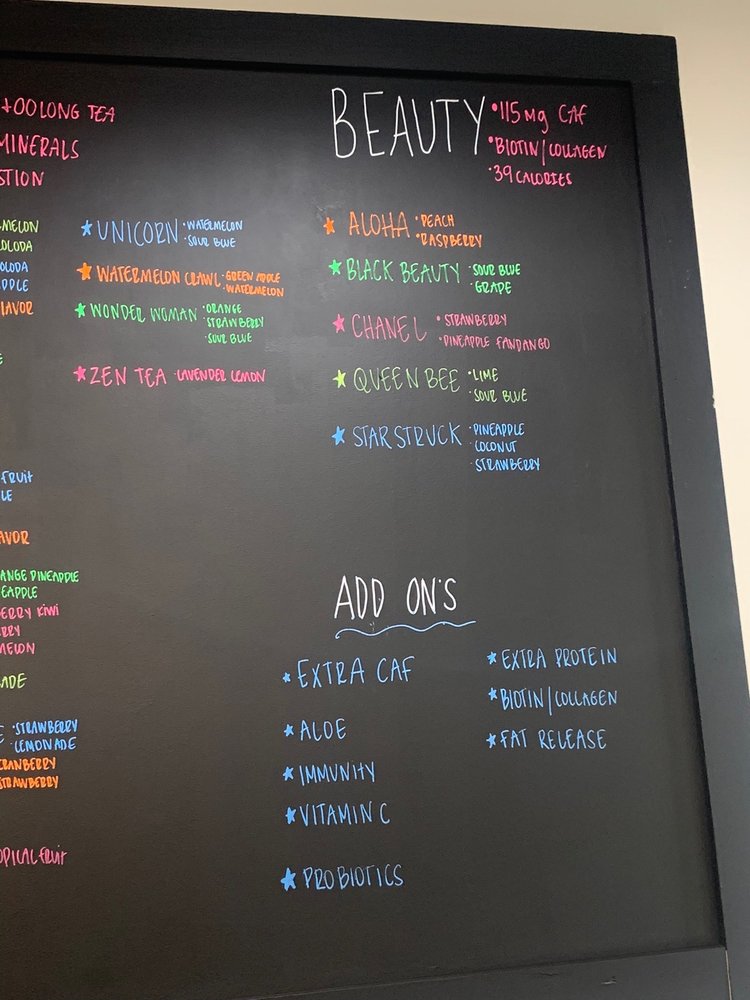 +OOLONG TEA
MINERALS
STION
MELON
OLODA
OLODA
PPLE
LAVOR
★ UNICORN • WATERMELON
• SOUR BLUE
★ WATERMELON CRAWL • GREEN APPLE
• WATERMELON
★ WONDER WOMAN • ORANGE
• STRAWBERRY
• SOUR BLUE
★ ZEN TEA • LAVENDER LEMON
FRUIT
LE
AVOR
ANGE PINEAPPLE
EAPPLE
BERRY KIWI
RRY
MELON
ADE
E • STRAWBERRY
• LEMONADE
CRANBERRY
STRAWBERRY
OPICAL FRUIT
BEAUTY • 115 mg CAF
• BIOTIN/COLLAGEN
• 39 CALORIES
★ ALOHA • PEACH
• RASPBERRY
★ BLACK BEAUTY • SOUR BLUE
• GRAPE
★ CHANEL • STRAWBERRY
• PINEAPPLE FANDANGO
★ QUEEN BEE • LIME
• SOUR BLUE
★ STAR STRUCK • PINEAPPLE
• COCONUT
• STRAWBERRY
ADD ON'S
★ EXTRA CAF
★ ALOE
★ IMMUNITY
★ VITAMIN C
★ PROBIOTICS
★ EXTRA PROTEIN
★ BIOTIN/COLLAGEN
★ FAT RELEASE